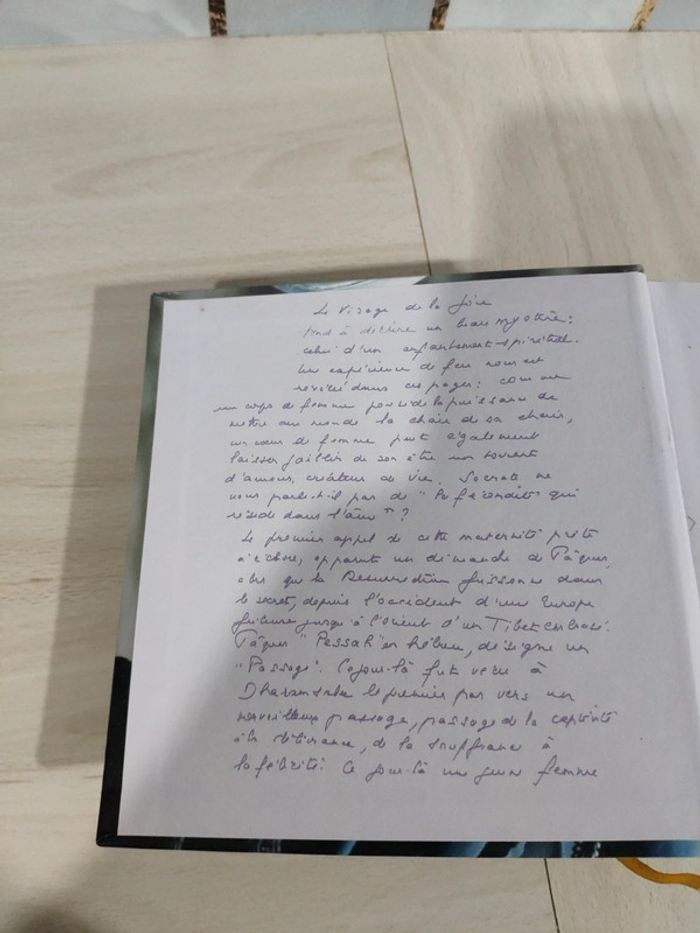 Le Visage de la Joie
tend à décrire un beau mystère:
celui d'un enfantement spirituel.
Une expérience de feu nous est
révélée dans ces pages: comme
un corps de femme possède la puissance de
mettre au monde la chair de sa chair,
un cœur de femme peut également
laisser jaillir de son être un torrent
d'amour, créateur de vie. Socrate ne
nous parle-t-il pas de "la fécondité qui
réside dans l'âme"?
Le premier appel de cette maternité prête
à éclore, apparut un dimanche de Pâques,
alors que la Résurrection frissonne dans
le secret, depuis l'occident d'une Europe
jusqu'à l'orient d'un Tibet embrasé.
Pâques "Pessah" en hébreu, désigne un
"Passage". Ce jour-là fut vécu à
Dharamsala le premier pas vers un
merveilleux passage, passage de la captivité
à la délivrance, de la souffrance à
la félicité. Ce jour-là une jeune femme